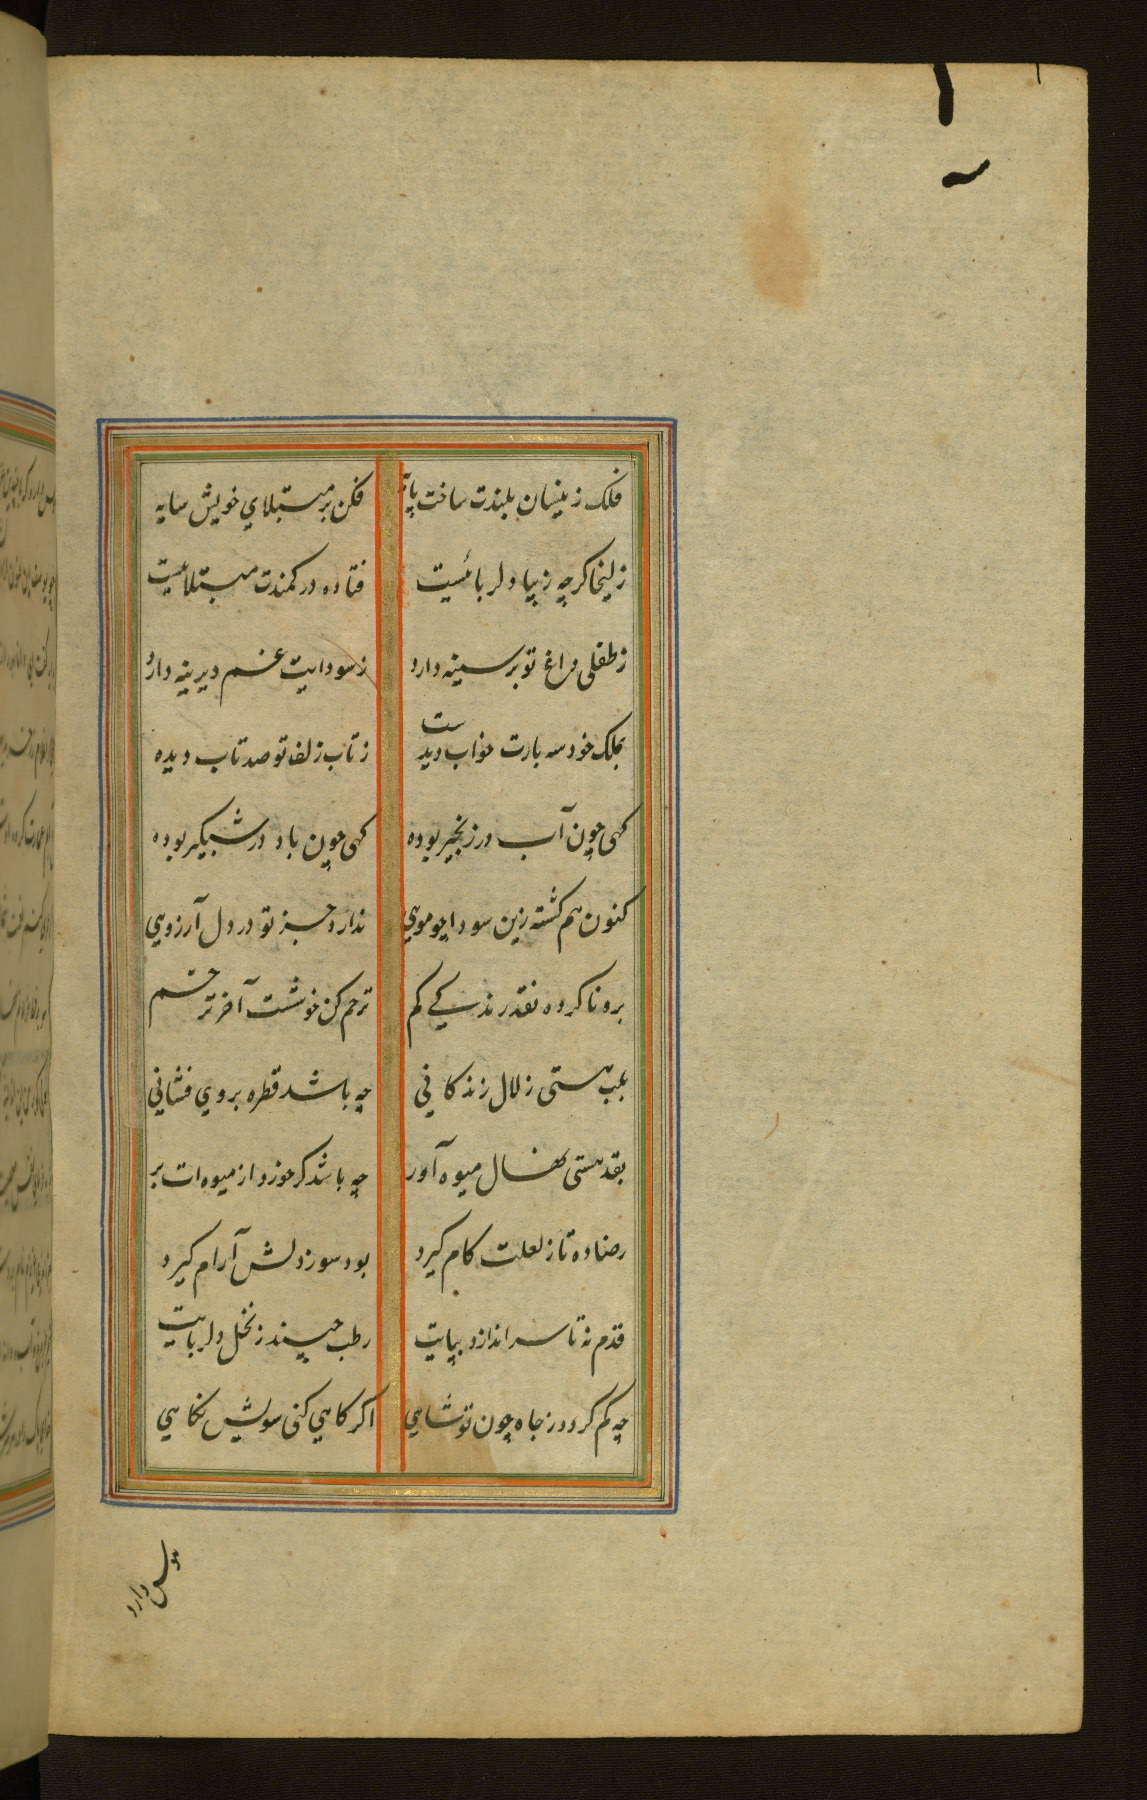 فلک زینسان بلندت ساخت پایه فکن بر مبتلای خویش سایه
زلیخا کرچه زیبا دلربائیست فتاده در کمندت مبتلائیست
ز طفلی داغ تو بر سینه دارد ز سودایت غم دیرینه دارد
بملک خود سه بارت خواب دیدست ز تاب زلف تو صد تاب دیده
کهی چون آب در زنجیر بوده کهی چون باد در شبکیر بوده
کنون هم کشته زین سودا چو مویی ندارد جز تو در دل آرزویی
برو نا کرده نقد زندکی کم ترحم کن خوشست آخر ترحم
بلب هستی زلال زندکانی چه باشد قطره بروی فشانی
بقد هستی نهال میوه آور چه باشد کر خورد از میوه ات بر
رضا ده تا ز لعلت کام کیرد بود سوز دلش آرام کیرد
قدم نه تا سر اندازد بپایت رطب چیند ز نخل دلربایت
چه کم کردد ز جاه چون تو شاهی اکر کاهی کنی سویش نکاهی